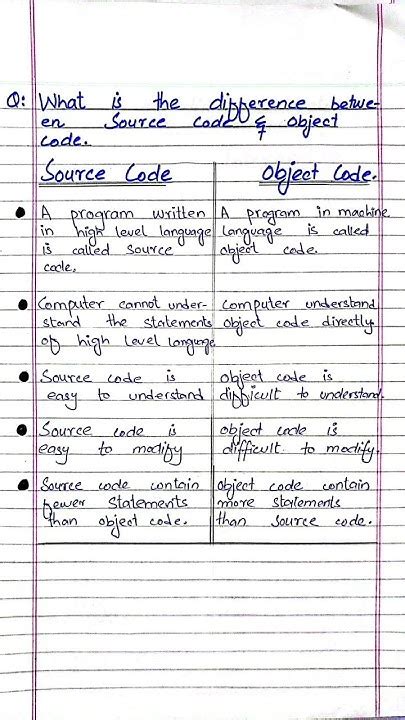 Q: What is the difference betwe-
en Source code & object
code.
Source Code
Object Code.
A program written
in high level language
is called source
code.
A program in machine
language is called
object code.
Computer cannot under-
stand the statements
of high level language
Computer understand
object code directly
Source code is
easy to understand
object code is
difficult to understand.
Source code is
easy to modify
object code is
difficult to modify.
Source code contain
fewer statements
than object code.
object code contain
more statements
than source code.